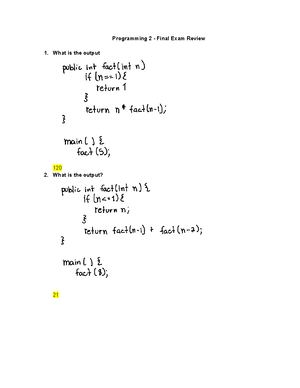 Programming 2 - Final Exam Review
1. What is the output
public int fact(int n)
if (n==1){
return 1
}
return n* fact(n-1);
}
main( ) {
fact (5);
120
2. What is the output?
public int fact(int n) {
if (n<=1){
return n;
}
return fact(n-1) + fact(n-2);
}
main( ) {
fact(8);
21